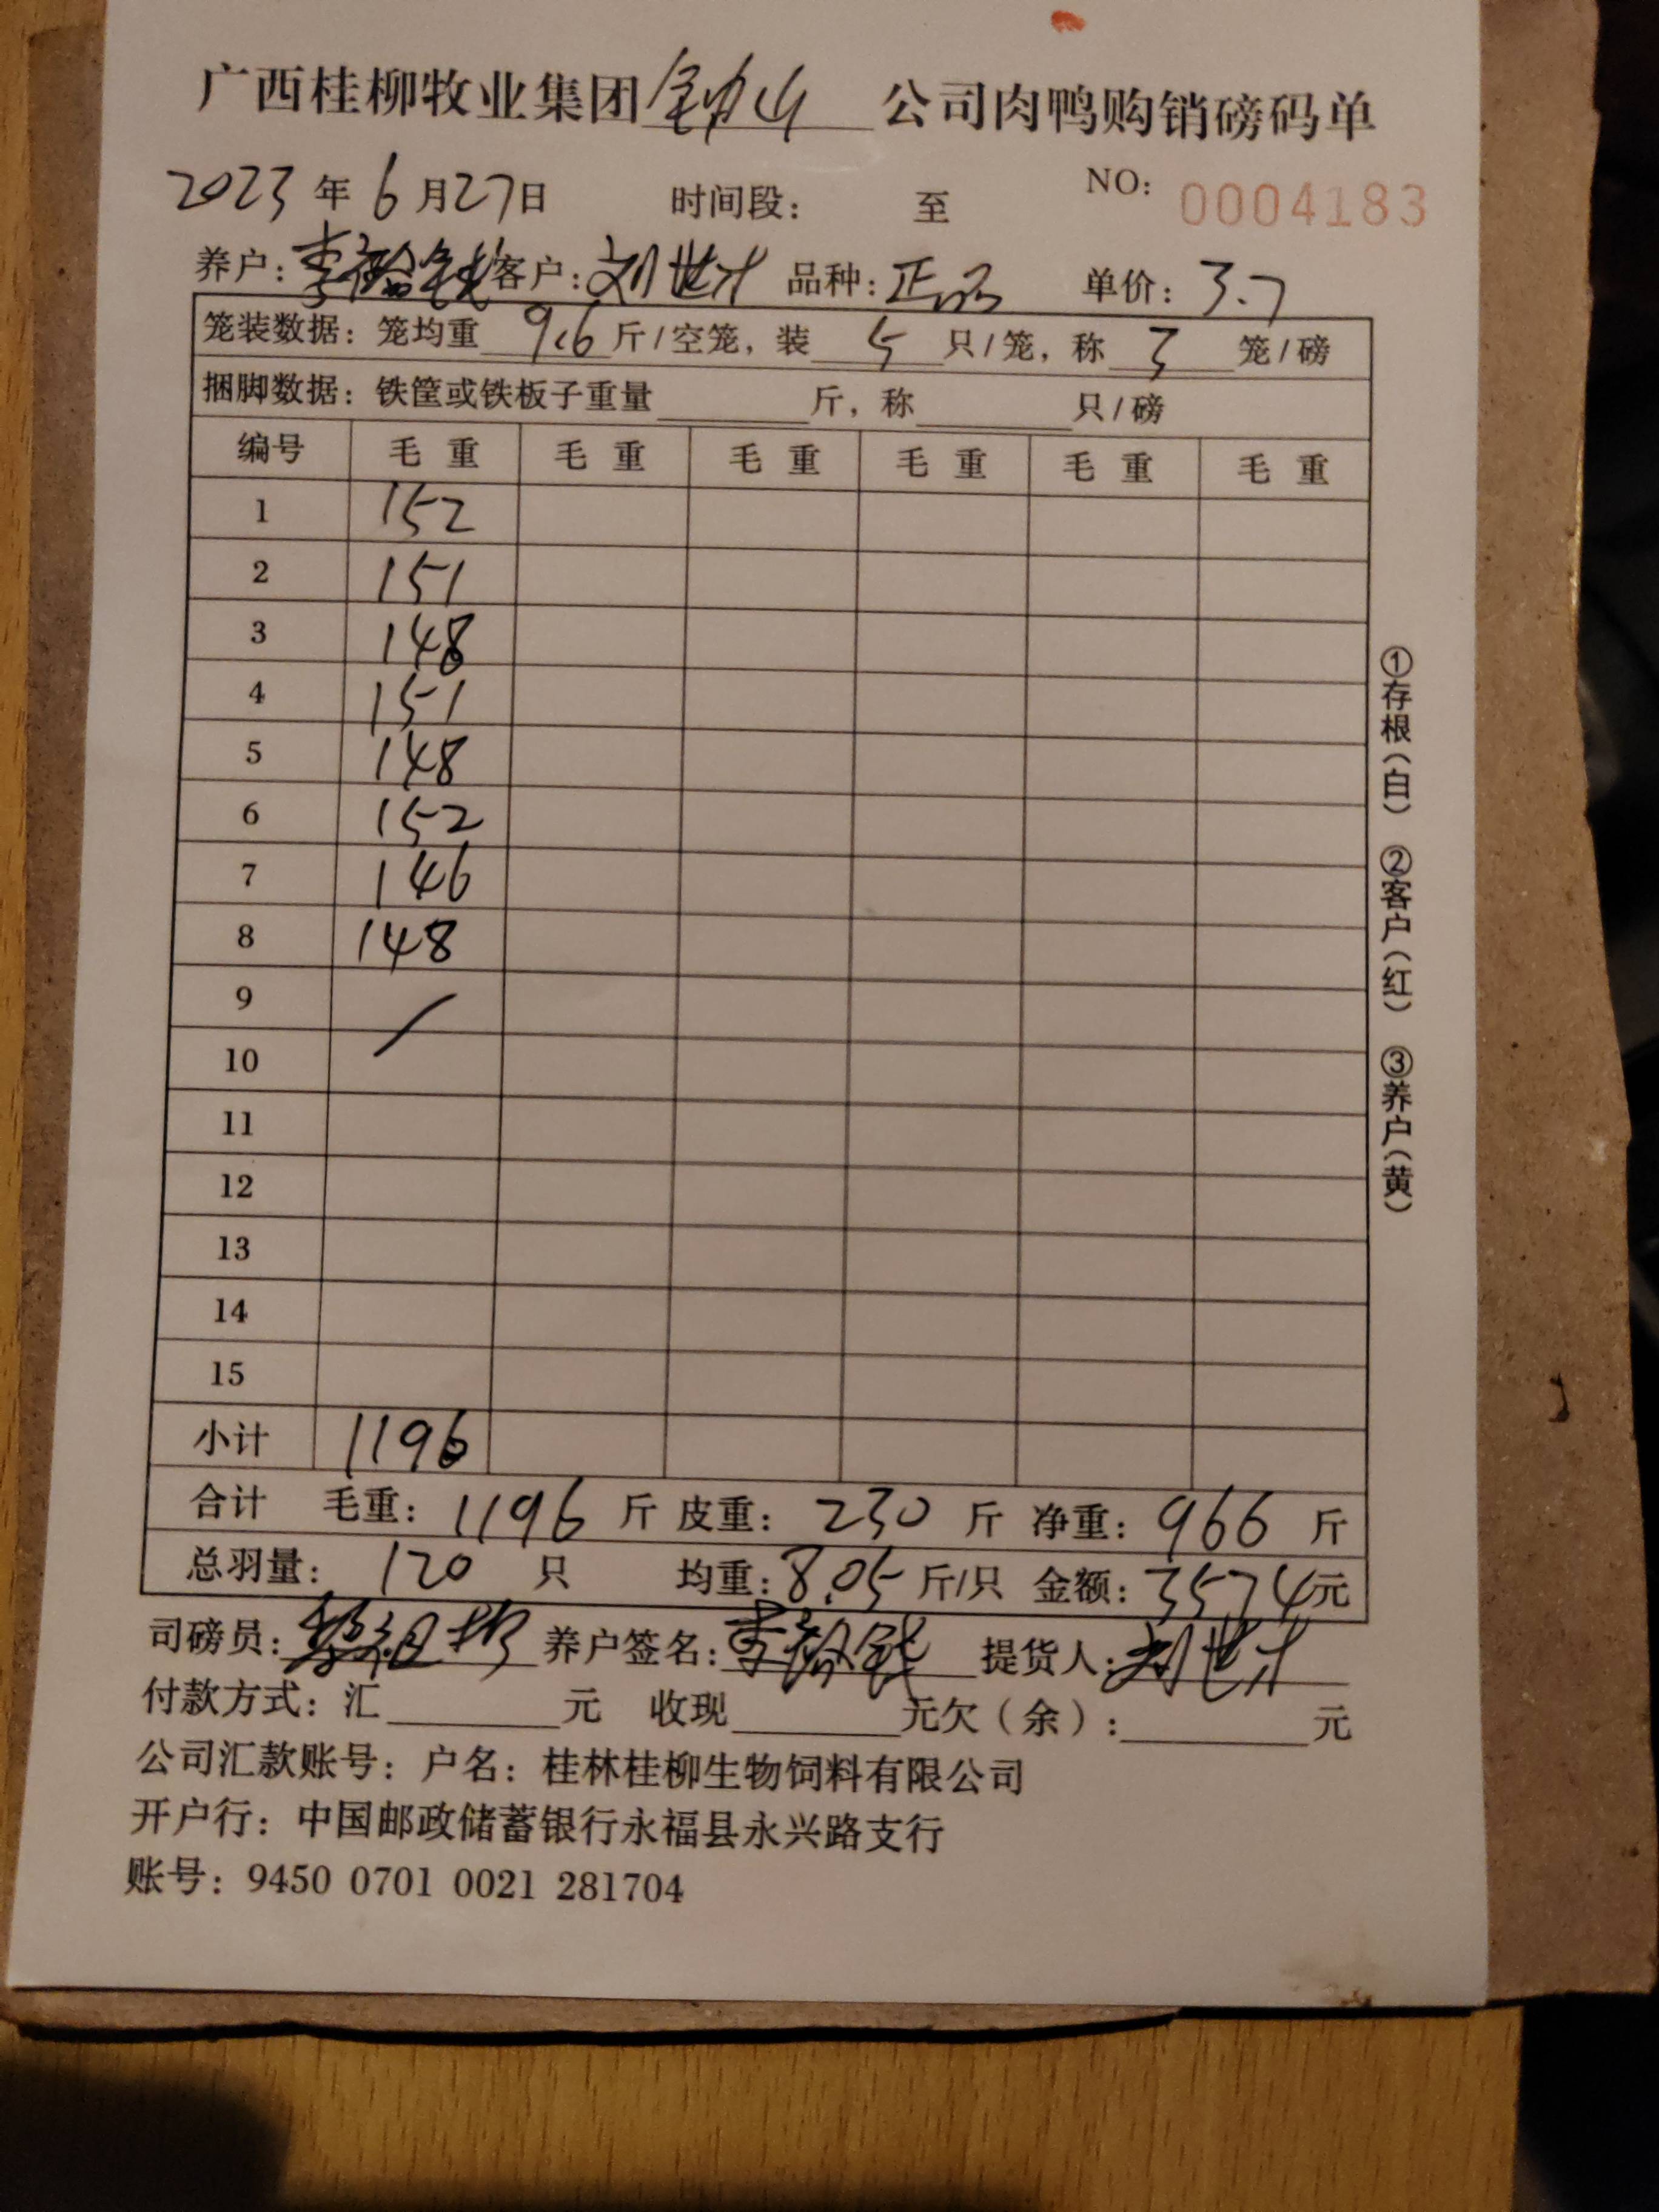 广西桂柳牧业集团钟山公司肉鸭购销磅码单
2023年6月27日 时间段: 至 NO: 0004183
养户: 李 客户: 刘世才 品种: 正品 单价: 3.7
笼装数据: 笼均重 9.6 斤/空笼, 装 5 只/笼, 称 3 笼/磅
捆脚数据: 铁筐或铁板子重量 斤, 称 只/磅
编号 毛重 毛重 毛重 毛重 毛重 毛重
1 152
2 151
3 148
4 151
5 148
6 152
7 146
8 148
9 /
10
11
12
13
14
15
小计 1196
合计 毛重: 1196 斤 皮重: 230 斤 净重: 966 斤
总羽量: 120 只 均重: 8.05 斤/只 金额: 3574元
司磅员: 养户签名: 李 提货人: 刘世才
付款方式: 汇 元 收现 元欠(余): 元
公司汇款账号: 户名: 桂林桂柳生物饲料有限公司
开户行: 中国邮政储蓄银行永福县永兴路支行
账号: 9450 0701 0021 281704
①存根(白) ②客户(红) ③养户(黄)